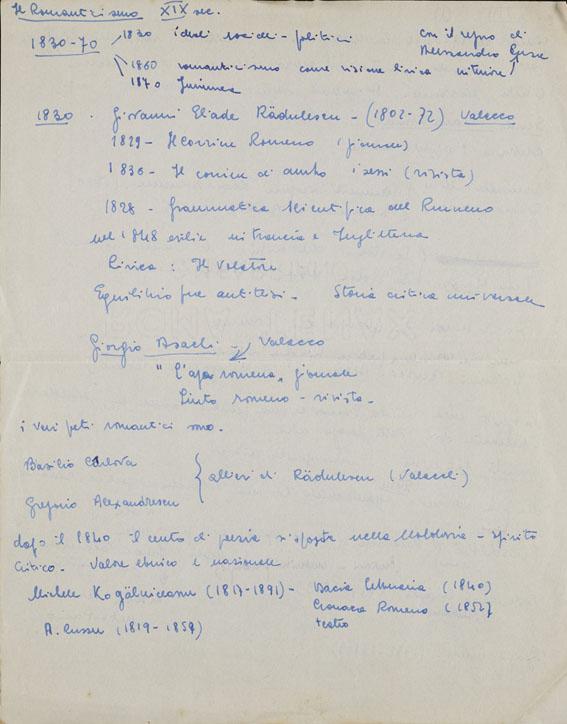 Il Romanticismo XIX sec.
1830-70
1830 ideali sociali - politici
con il regno di Alessandro Cuza
1860 romanticismo come visione lirica interiore
1870 Junimea
1830. Giovanni Eliade Rădulescu - (1802-72) Valacco
1829 - Il Corriere Romeno (giornale)
1836 - Il corriere di ambo i sessi (rivista)
1828 - Grammatica scientifica del Rumeno
nel 1848 esilio in Francia e Inghilterra
Lirica : Il Volatore
Equilibrio fra antitesi. Storia critica universale
Giorgio Asachi - Valacco
"L'ape romena" giornale
romeno - rivista.
i veri poeti romantici sono.
Basilio Cârlova
allievi di Rădulescu (Valacchi)
Gregorio Alexandrescu
dopo il 1840 il centro di poesia si sposta nella Moldavia - spirito
critico. Valore etnico e nazionale
Michele Kogălniceanu (1817-1891) - Dacia Letteraria (1840)
Cronaca Romeno (1852)
A. Russu (1819-1859)
teatro